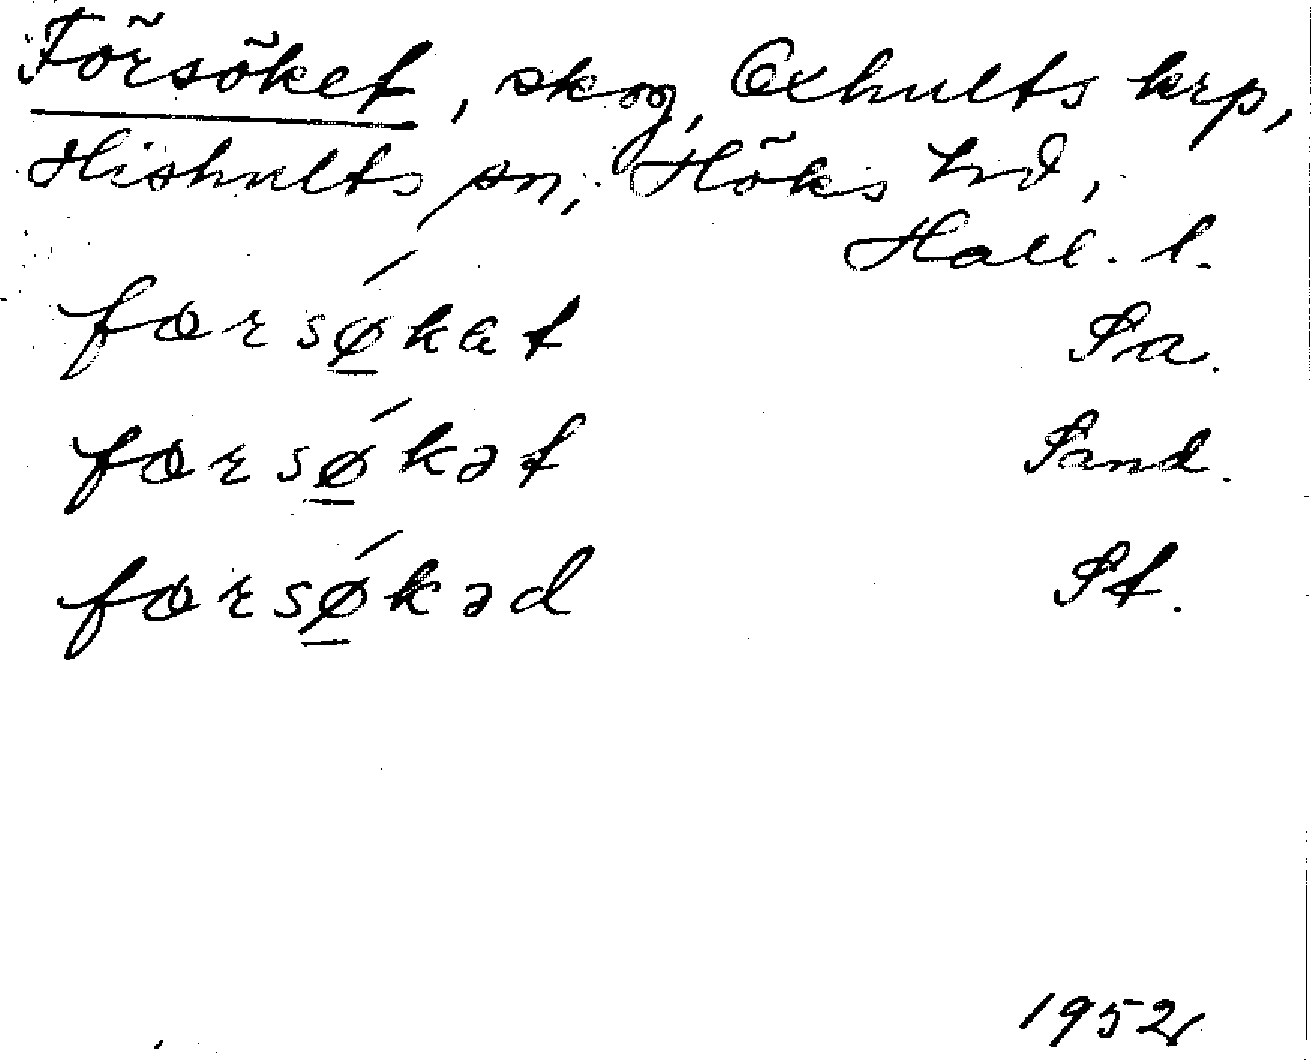 Försöket, skog, Oxhults krp,
Hishults sn, Höks hd,
Hall. l.
forsǿ̲kat Sa.
forsǿ̲kət Sand.
forsǿ̲kəd St.
1952